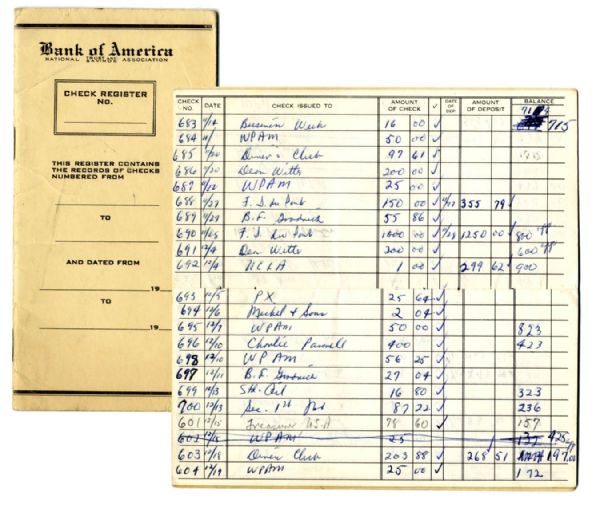 Bank of America
NATIONAL TRUST AND SAVINGS ASSOCIATION
CHECK REGISTER
No.
THIS REGISTER CONTAINS
THE RECORDS OF CHECKS
NUMBERED FROM
TO
AND DATED FROM
19
TO
19
CHECK NO. DATE CHECK ISSUED TO AMOUNT OF CHECK √ DATE OF DEP. AMOUNT OF DEPOSIT BALANCE
683 Week 16 00 √ 715
684 WPAM 50 00 √
685 Diner's Club 97 61 √
686 Dean Witter 200 00 √
687 WPAM 25 00 √
688 Du Pont 150 00 √ 355 79 √
689 B.F. Goodrich 55 86 √
690 Du Pont 1000 00 √ 1250 00 √ 800
691 12/4 Dean Witter 200 00 √ 600
692 12/4 1 00 √ 299 62 √ 900
693 12/5 PX 25 64 √
694 12/6 & Sons 2 04 √
695 12/7 WPAM 50 00 √ 823
696 12/10 Charlie 400 √ 423
698 12/10 WPAM 56 25 √
697 12/11 B.F. Goodrich 27 04 √
699 12/13 16 80 √ 323
700 12/13 Sec. 1st 87 22 √ 236
601 12/15 Treasurer USA 78 60 √ 157
602 12/15 WPAM 25 132 425
603 12/18 Diner Club 203 88 √ 268 51 197.00
604 12/19 WPAM 25 00 √ 172